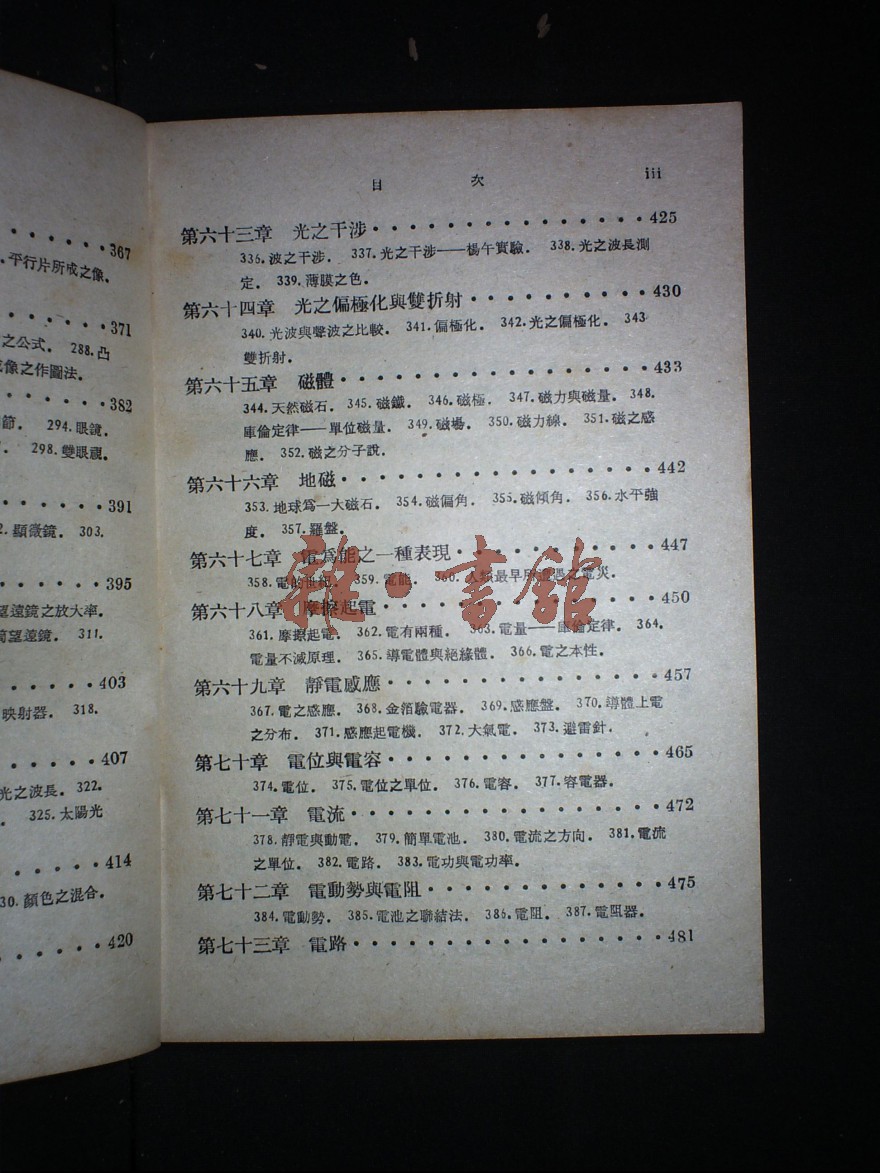 367
.平行片所成之像.
371
之公式. 288.凸
像之作圖法.
382
節. 294.眼鏡.
298.雙眼視.
391
2.顯微鏡. 303.
395
望遠鏡之放大率.
望遠鏡. 311.
403
映射器. 318.
407
光之波長. 322.
. 325.太陽光
414
30.顏色之混合.
420
目 次 iii
第六十三章 光之干涉 425
336.波之干涉. 337.光之干涉——楊午實驗. 338.光之波長測
定. 339.薄膜之色.
第六十四章 光之偏極化與雙折射 430
340.光波與聲波之比較. 341.偏極化. 342.光之偏極化. 343
雙折射.
第六十五章 磁體 433
344.天然磁石. 345.磁鐵. 346.磁極. 347.磁力與磁量. 348.
庫倫定律——單位磁量. 349.磁場. 350.磁力線. 351.磁之感
應. 352.磁之分子說.
第六十六章 地磁 442
353.地球爲一大磁石. 354.磁偏角. 355.磁傾角. 356.水平強
度. 357.羅盤.
第六十七章 電爲能之一種表現 447
358.電的世紀. 359.電能. 360.人類最早所遭遇之電災.
第六十八章 摩擦起電 450
361.摩擦起電. 362.電有兩種. 363.電量——庫倫定律. 364.
電量不滅原理. 365.導電體與絕緣體. 366.電之本性.
第六十九章 靜電感應 457
367.電之感應. 368.金箔驗電器. 369.感應盤. 370.導體上電
之分布. 371.感應起電機. 372.大氣電. 373.避雷針.
第七十章 電位與電容 465
374.電位. 375.電位之單位. 376.電容. 377.容電器.
第七十一章 電流 472
378.靜電與動電. 379.簡單電池. 380.電流之方向. 381.電流
之單位. 382.電路. 383.電功與電功率.
第七十二章 電動勢與電阻 475
384.電動勢. 385.電池之聯結法. 386.電阻. 387.電阻器.
第七十三章 電路 481
雜·書館